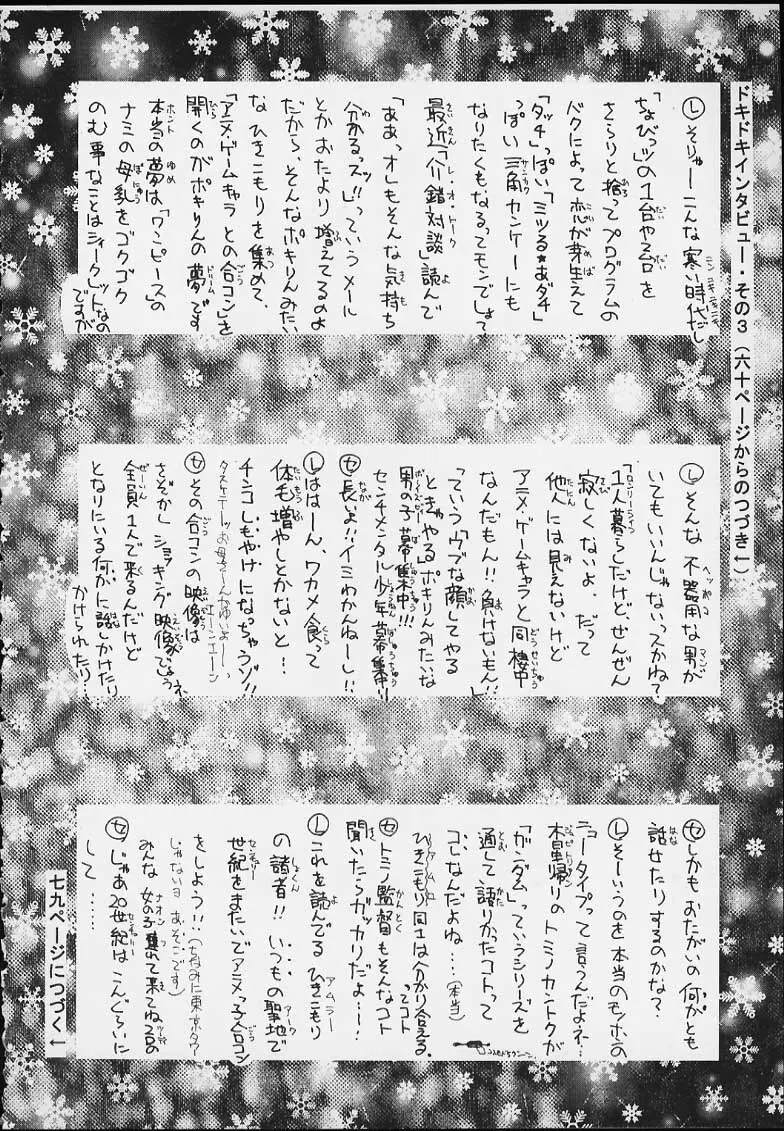 ドキドキインタビュー・その3 (六十ページからのつづき↓)
Ⓛそりゃーこんな寒い時代だし
「ちょびっツ」の1台や2台を
さらりと捨ってプログラムの
バクによって恋が芽生えて
「タッチ」っぽい「ミツる★あダチ」
っぽい三角カンケーにも
なりたくもなるってモンでしょて
最近「介錯対談」読んで
「ああっオレもそんな気持ち
分かるっスッ!!」っていうメール
とかおたより増えてるのよ
だから、そんなポキリんみたい
なひきこもりを集めて、
「アニメ・ゲームキャラとの合コン」を
開くのがポキりんの夢です
本当の夢は「ワンピース」の
ナミの母乳をゴクゴク
のむ事なことはシィークレットなの
ですが
Ⓛそんな不器用な男が
いてもいいんじゃないってかね?
1人暮らしだけど、ぜんぜん
寂しくないよ。だって
他人には見えないけど
アニメ・ゲームキャラと同棲中
なんだもん!!負けないもん!!」
っていうウブな顔してやる
ときゃやるポキりんみたいな
男の子募集中!!!
センチメンタル少年募集中!!
㋝長いよ!!イミわかんねーし!!
Ⓛははーん、ワカメ食って
体毛増やしとかないと!・
チンコしもやけになっちゃうゾ!!
㋝その合コンの映像は
さぞかしショッキング映像でしょうネ、
全員1人で来るんだけど
となりにいる何かに話しかけたり
かけられたり…
㋝しかもおたがいの何かとも
話せたりするのかな?・
Ⓛそーいうのを本当のモノホンの
ニュータイプって言うんだよネ…
木星帰りのトミノカントクが
「ガンダム」っていうシリーズを
通して語りかったコトって
コレなんだよね…(本当)
ひきこもり同士は分かり合える。
ってコト
㋝トミノ監督もそんなコト
聞いたらガッカリだよ…!
Ⓛこれを読んでるひきこもり
の諸者!!いつもの聖地で
世紀をまたいでアニメっ子合コン
をしよう!!(ちなみに東京タワー
じゃないヨ あそこです)
みんな女の子連れて来てね2台の
㋝じゃあ20世紀はこんぐらいに
して……
七九ページにつづく↓